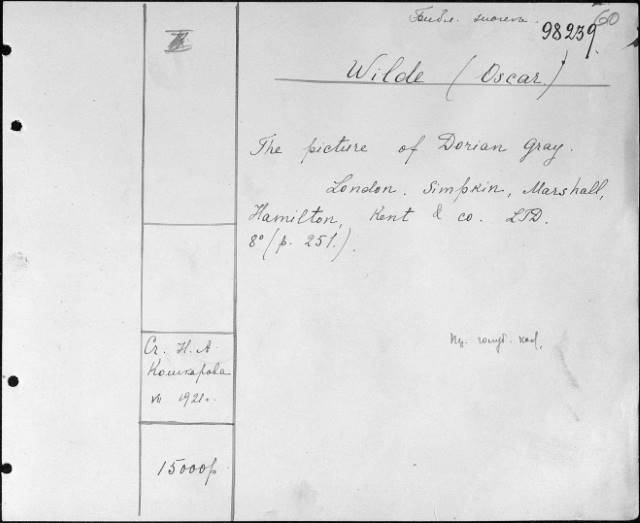 60
98239
Wilde (Oscar.)
The picture of Dorian Gray.
London. Simpkin, Marshall,
Hamilton, Kent & co. LTD.
8° (p. 251.).
Ст. Н. А.
Кошкарова
VII 1921.
15000р